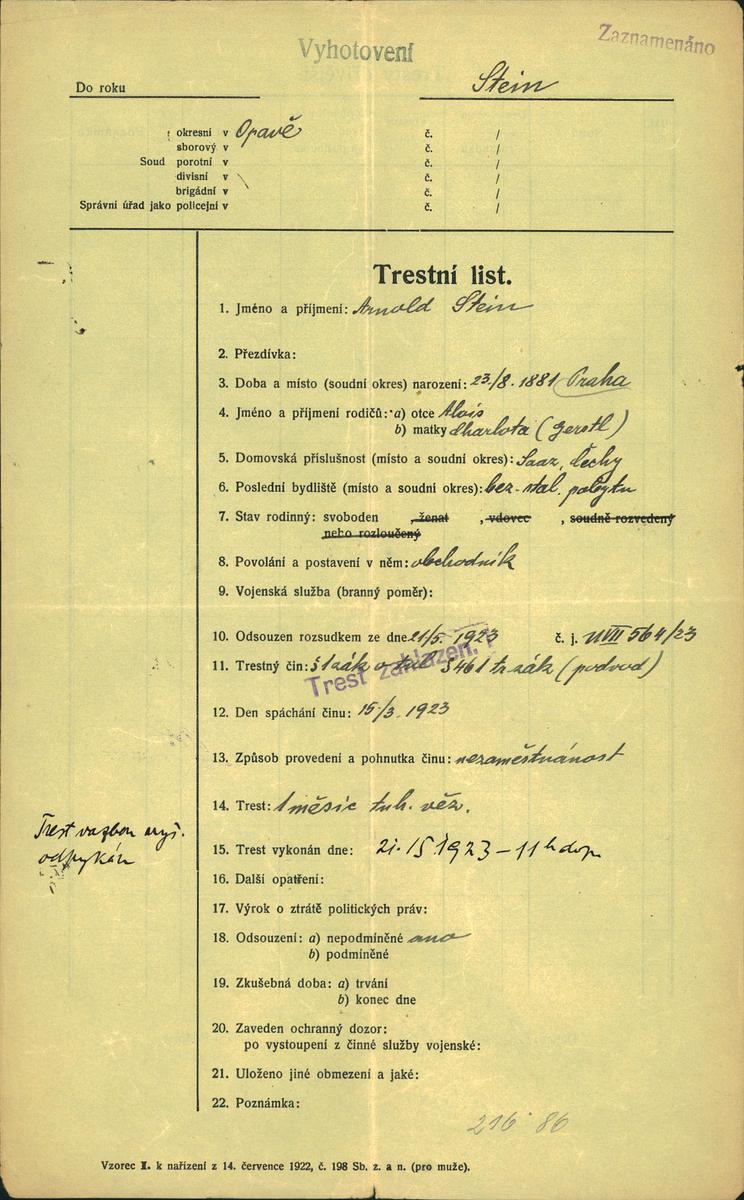 Vyhotovení
Zaznamenáno
Do roku
Stein
okresní v Opavě č. /
sborový v č. /
Soud porotní v č. /
divisní v č. /
brigádní v č. /
Správní úřad jako policejní v č. /
Trestní list.
1. Jméno a příjmení: Arnold Stein
2. Přezdívka:
3. Doba a místo (soudní okres) narození: 23/8. 1881 Praha
4. Jméno a příjmení rodičů: a) otce Alois
b) matky Charlota (Gerstl)
5. Domovská příslušnost (místo a soudní okres): Saaz, Čechy
6. Poslední bydliště (místo a soudní okres): bez stál. pobytu
7. Stav rodinný: svoboden , ženat , vdovec , soudně rozvedený
nebo rozloučený
8. Povolání a postavení v něm: obchodník
9. Vojenská služba (branný poměr):
10. Odsouzen rozsudkem ze dne 21/5. 1923 č. j. U VII 564/23
11. Trestný čin: § 461 tr. zák (podvod)
Trest zahlazen.
12. Den spáchání činu: 15/3. 1923
13. Způsob provedení a pohnutka činu: nezaměstnánost
14. Trest: 1 měsíc tuh. věz.
Trest vazbou
odpykán
15. Trest vykonán dne: 21./5 1923 – 11 h dop.
16. Další opatření:
17. Výrok o ztrátě politických práv:
18. Odsouzení: a) nepodmíněné ano
b) podmíněné
19. Zkušebná doba: a) trvání
b) konec dne
20. Zaveden ochranný dozor:
po vystoupení z činné služby vojenské:
21. Uloženo jiné obmezení a jaké:
22. Poznámka:
216 86
Vzorec I. k nařízení z 14. července 1922, č. 198 Sb. z. a n. (pro muže).